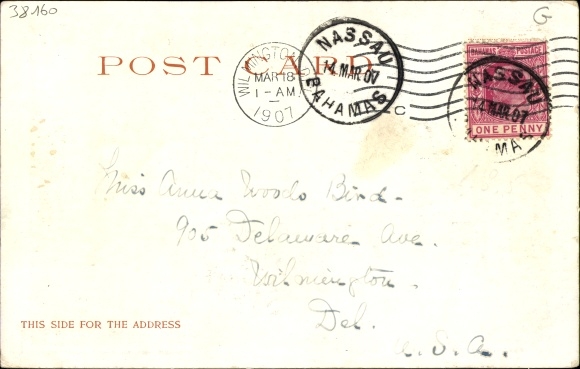 38160
G
POST CARD
WILMINGTON
MAR 18
1-AM
1907
NASSAU
14 MAR 07
BAHAMAS
C
BAHAMAS POSTAGE
NASSAU
14 MAR 07
MAS
ONE PENNY
Miss Anna Woods Bird
905 Delaware Ave.
Wilmington.
Del.
U.S.A.
THIS SIDE FOR THE ADDRESS